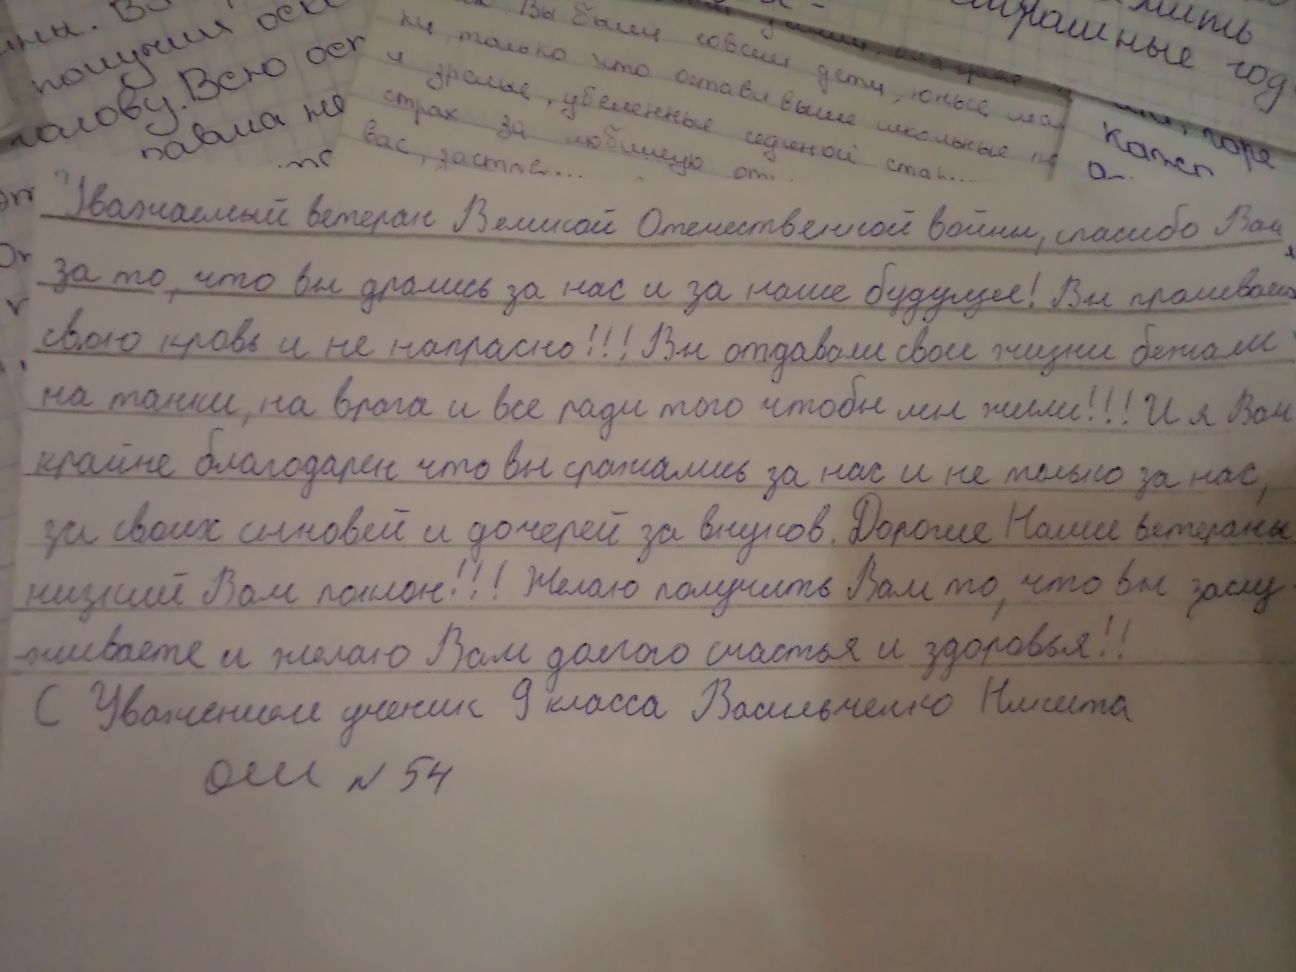 ны. В
получил оск
голову. Всю ост
павла не
Вы были совсем дети, юные ма
ки, только что оставившие школьные
и зрелые, убеленные сединой ста
страх за любимую от
вас, заст
мить
страшные год
горе
Уважаемый ветеран Великой Отечественной войны, спасибо Вам
за то, что вы дрались за нас и за наше будущее! Вы проливали
свою кровь и не напрасно!!! Вы отдавали свои жизни бежали
на танки, на врага и все ради того чтобы мы жили!!! И я Вам
крайне благодарен что вы сражались за нас и не только за нас,
за своих сыновей и дочерей за внуков. Дорогие Наши ветераны
низкий Вам поклон!!! Желаю получить Вам то, что вы заслу-
живаете и желаю Вам долгого счастья и здоровья!!
С Уважением ученик 9 класса Васильченко Никита
ОШ № 54